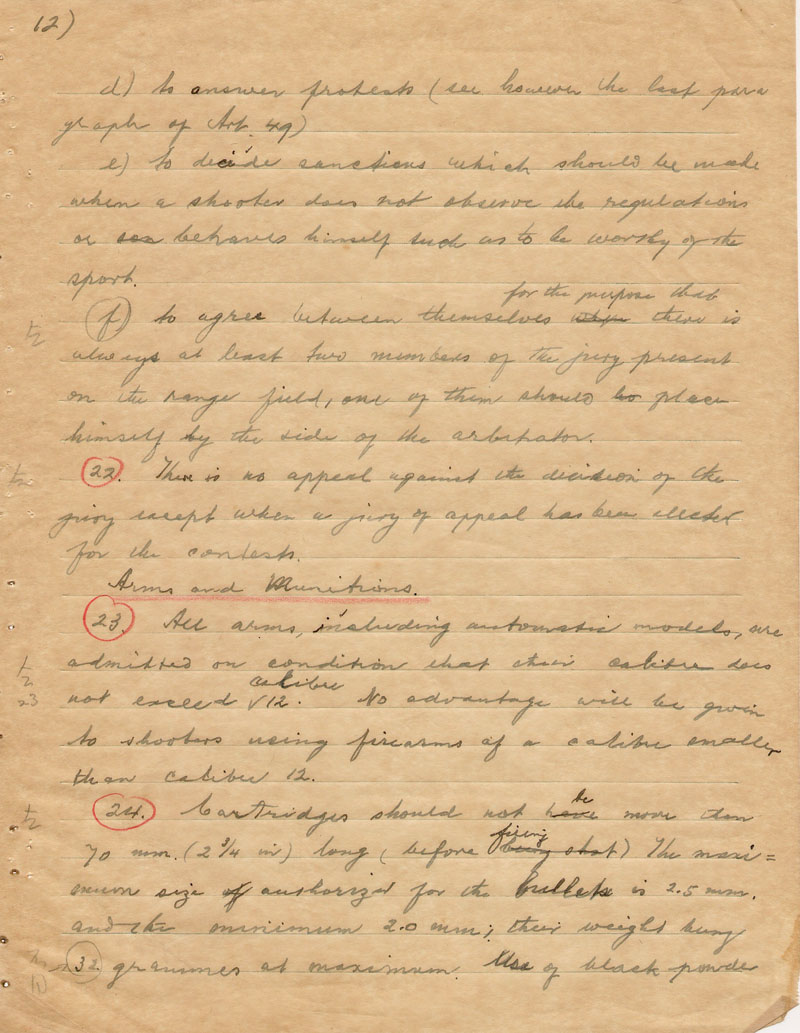 12)
d) to answer protests (see however the last para
graph of Art. 49)
e) to decide sanctions which should be made
when a shooter does not observe the regulations
or behaves himself such as to be worthy of the
sport.
for the purpose that
f) to agree between themselves when there is
always at least two members of the jury present
on the range field, one of them should be place
himself by the side of the arbitrator.
22. There is no appeal against the decision of the
jury except when a jury of appeal has been elected
for the contests.
Arms and Munitions.
23. All arms, including automatic models, are
admitted on condition that their calibre does
calibre
not exceed √12. No advantage will be given
to shooters using firearms of a calibre smaller
than calibre 12.
be
24. Cartridges should not have more than
firing
70 mm. (2 3/4 in) long (before being shot) The maxi=
mum size of authorized for the bullets is 2.5 mm.
and the minimum 2.0 mm; their weight being
32 grammes at maximum. Use of black powder